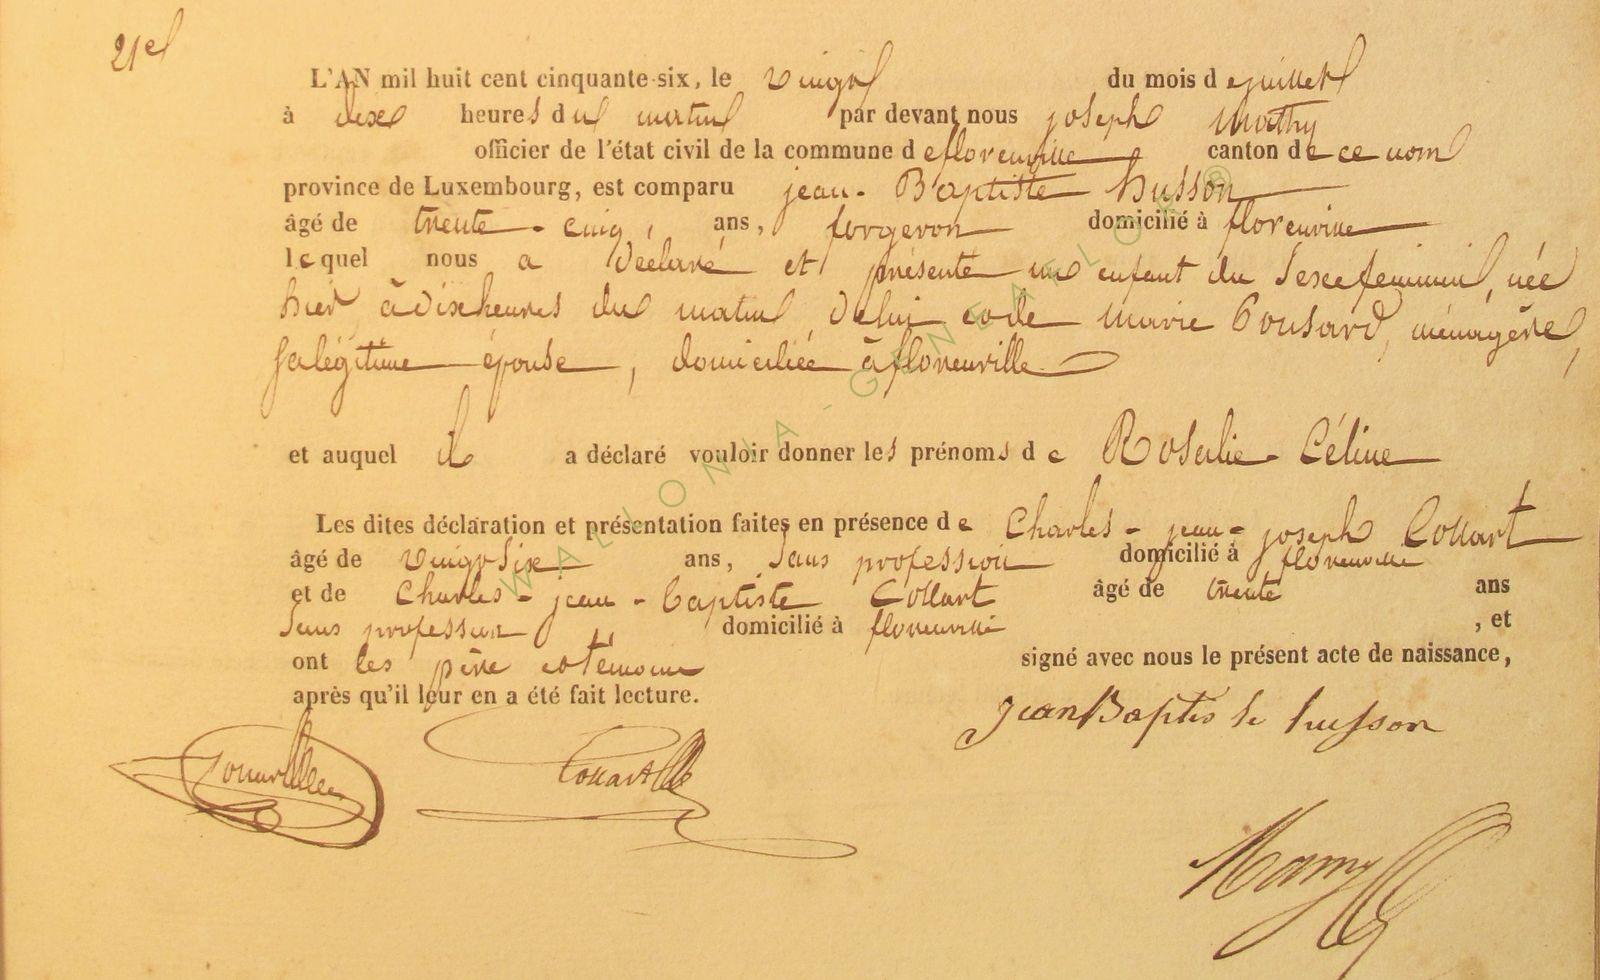 21e
L'AN mil huit cent cinquante-six, le vingt du mois de juillet
à dix heures du matin par devant nous joseph Mathy
officier de l'état civil de la commune de florenville canton de ce nom
province de Luxembourg, est comparu jean-Baptiste husson
âgé de trente-cinq, ans, forgeron domicilié à florenville
lequel nous a déclaré et présenté un enfant du Sexe feminin, née
hier à dix heures du matin, de lui et de Marie Gonsard, ménagère,
sa légitime épouse, domiciliée à florenville
et auquel il a déclaré vouloir donner les prénoms de Rosalie-Céline
Les dites déclaration et présentation faites en présence de Charles-jean-joseph Collart
âgé de vingt Six ans, Sans profession domicilié à florenville
et de Charles-jean-Baptiste Collart âgé de trente ans
Sans profession domicilié à florenville , et
ont les père et témoins signé avec nous le présent acte de naissance,
après qu'il leur en a été fait lecture.
Jean Baptiste husson
Collart
WALLONIA-GENEALOR ®